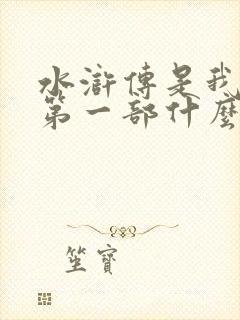 水滸傳是我
第一部什麼
坐寶